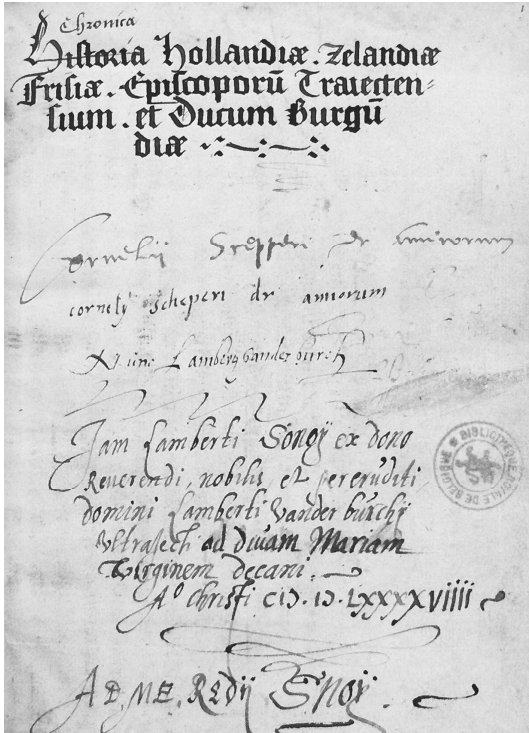 Chronica
Historia Hollandiæ. Zelandiæ
Frisiæ. Episcoporū Traiecten=
sium. et Ducum Burgū
diæ
Cornelij Scepperi et amicorum
cornelij scheperi et amicorum
Nunc Lamberti vander burch
Jam Lamberti Sonoÿ ex dono
Reverendi, nobilis, et pereruditi
domini Lamberti Vander burchÿ
Vltraiecti ad divam Mariam
Virginem decani.
Aº Christi CIƆ.IƆ.LXXXXVIIII
BIBLIOTHEQUE ROYALE DE BELGIQUE
AD. ME. REDIJ SNOŸ.